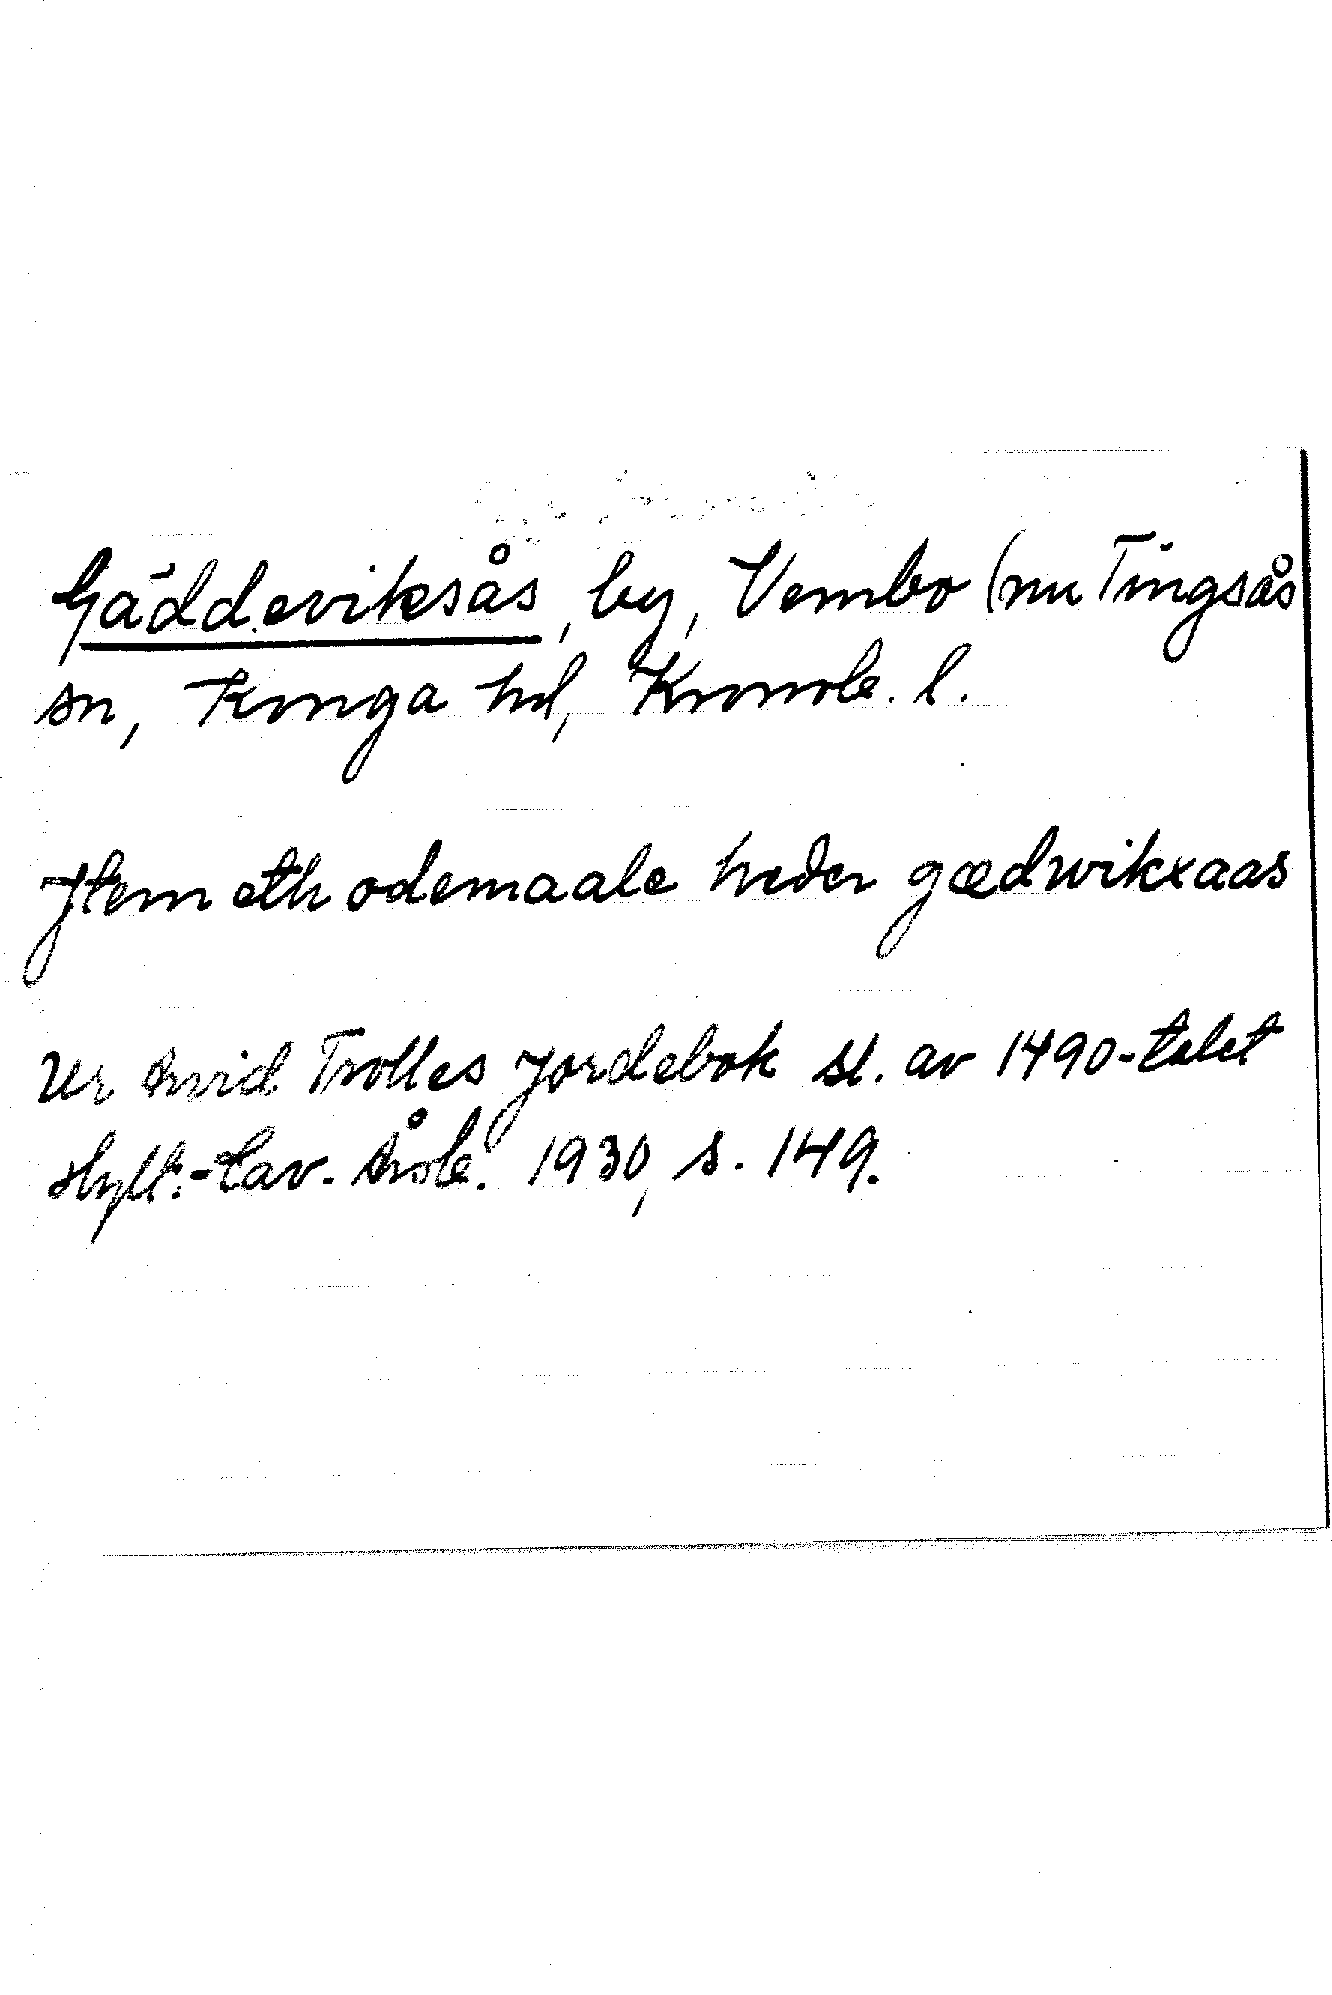 Gäddeviksås, by, Vembo (nu Tingsås
sn, Konga hd, Kronob. l.
Jtem eth ödemaale heder gædwikxaas
Ur Arvid Trolles Jordebok sl. av 1490-talet
Hylt:-Cav. Årsb. 1930, s. 149.